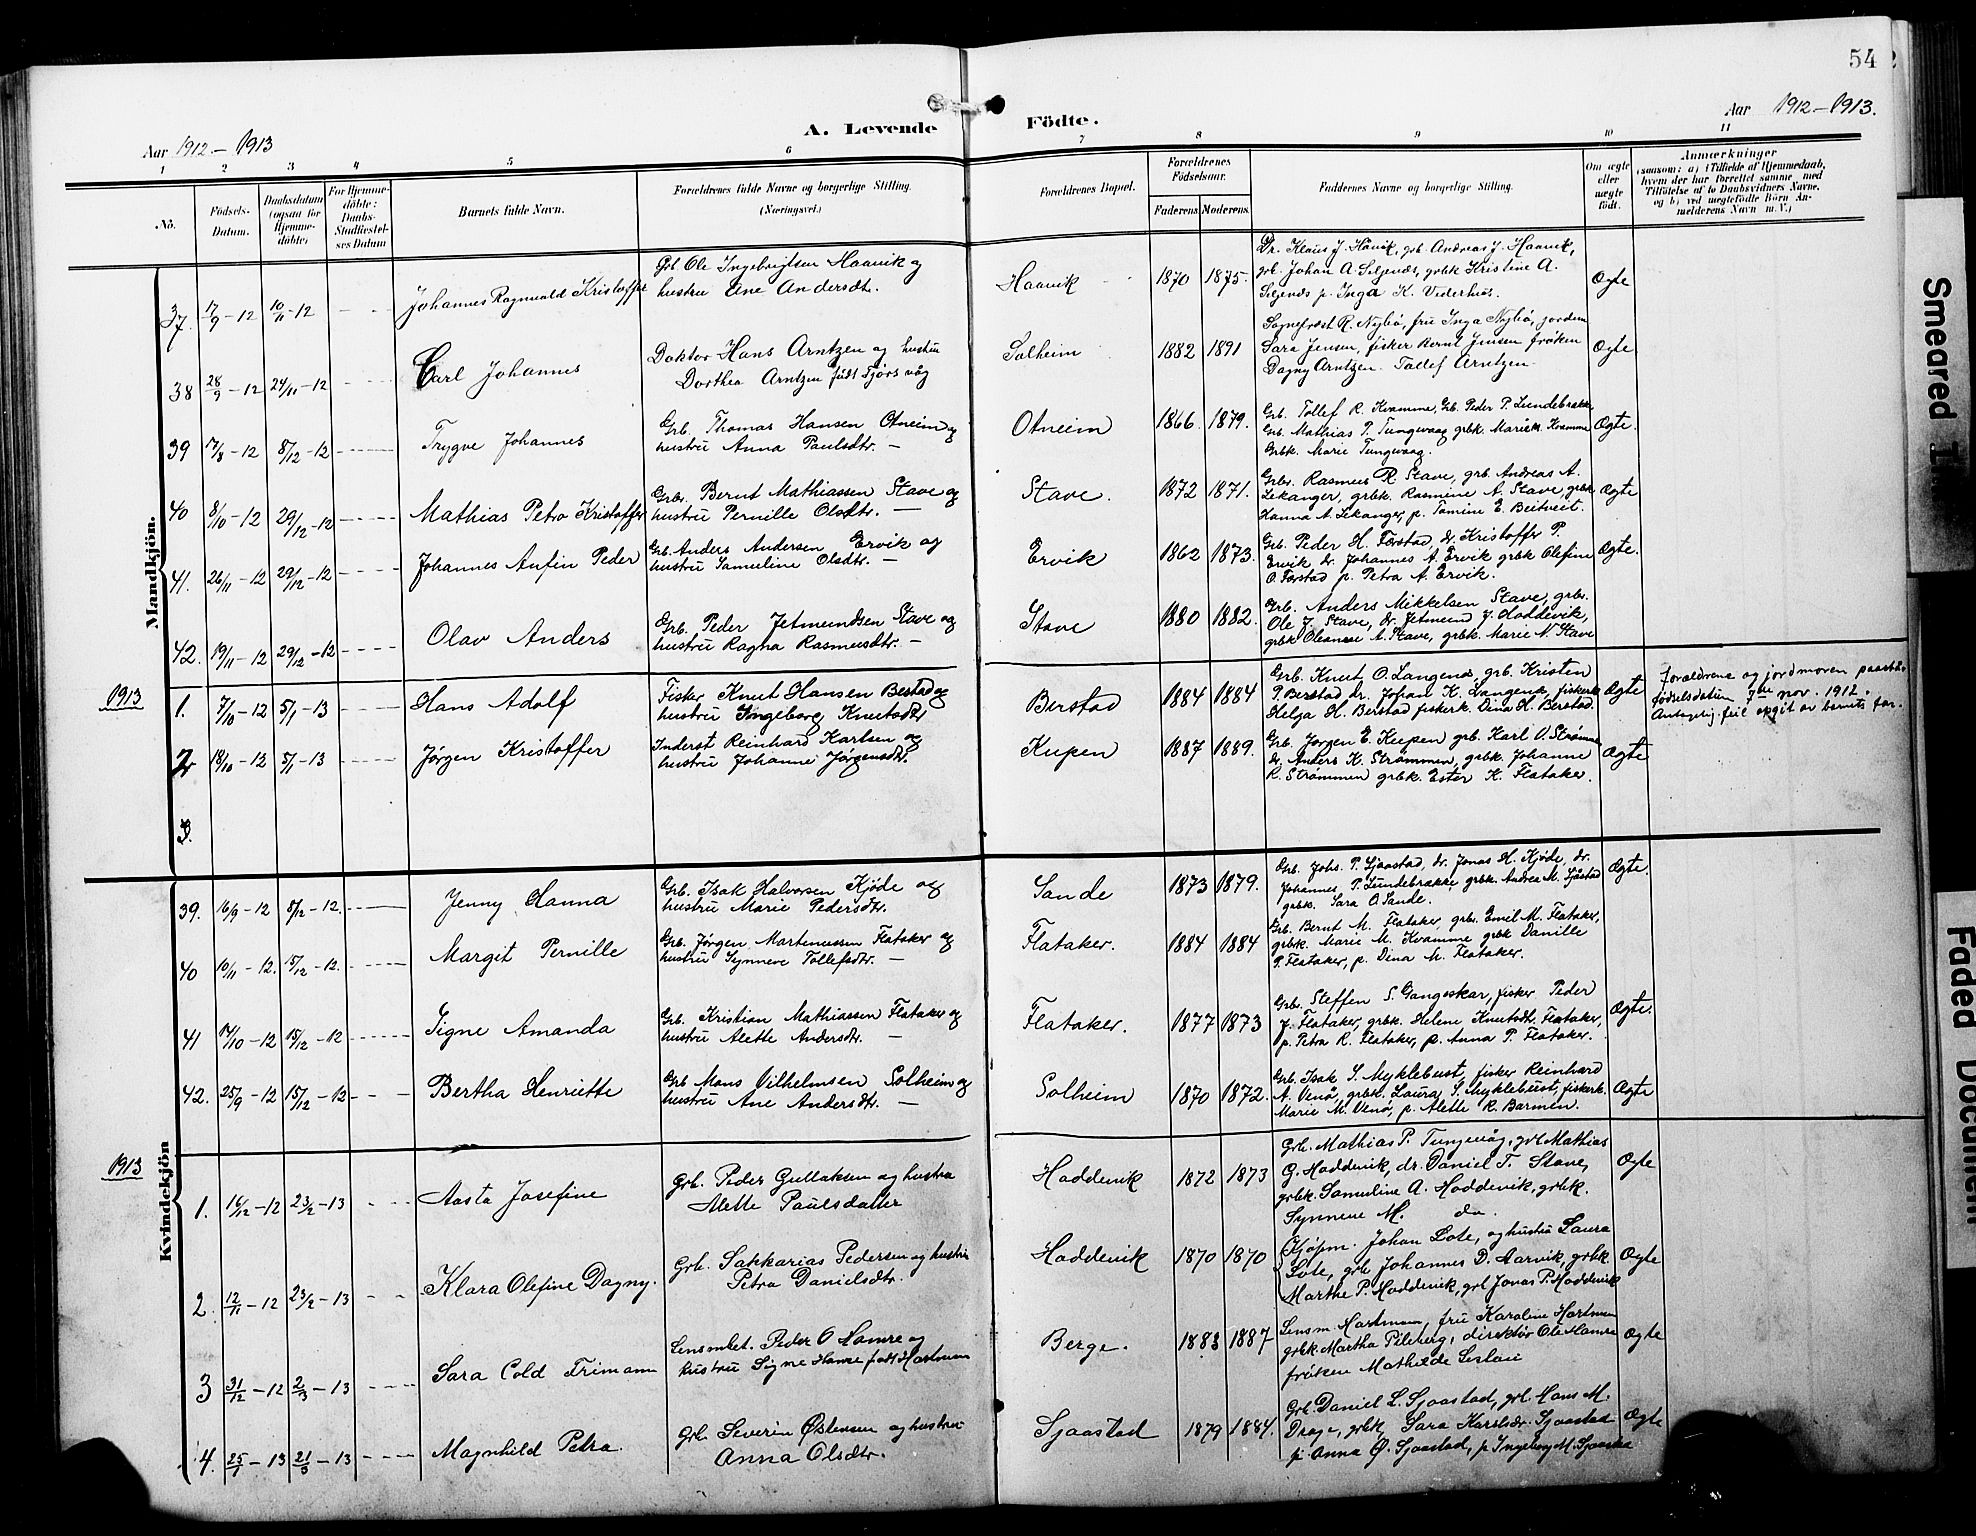 54
Aar 1912-1913
A. Levende Födte.
Aar 1912-1913.
1 2 3 4 5 6 7 8 9 10 11
No. Födsels-Datum. Daabsdatum (ogsaa for Hjemmedöbte) For Hjemmedöbte: Daabs-Stadfæstelses Datum Barnets fulde Navn. Forældrenes fulde Navne og borgerlige Stilling. (Næringsvei.) Forældrenes Bopæl. Forældrenes Födselsaar. Faderens Moderens. Faddernes Navne og borgerlige Stilling. Om ægte eller uægte födt. Anmærkninger (saasom: a) i Tilfælde af Hjemmedaab, hvem der har forrettet samme med Tilföielse af to Daabsvidners Navne, og b) ved uægtefödte Börn Anmelderens Navn m. V.)
Mandkjön.
37. 17/9-12 10/11-12 Johannes Ragnvald Kristoffer
Grb Ole Ingebrigtsen Haavik og
hustru Ane Andersdt.
Haavik 1870 1875.
Dr. Klaus J. Håvik, grb. Andreas J. Haavik,
grb. Johan A. Siljenæs, grbk Kristine A.
Siljenæs p. Inga K. Vederhus.
Ægte
38 28/9-12 24/11-12 Carl Johannes
Doktor Hans Arntzen og hustru
Dorthea Arntzen født Fjørsvåg
Solheim 1882 1891
Sogneprest R. Nybø, fru Inga Nybø, jordm
Sara Jensen, fisker Bernt Jensen frøken
Dagny Arntzen. Tollef Arntzen.
Ægte
39 17/8-12 8/12-12 Trygve Johannes
Grb. Thomas Hansen Otneim og
hustru Anna Paulsdtr. —
Otneim 1866 1879.
Grb. Tollef R. Kvamme, Grb. Peder P. Lundebrække
Grb. Mathias P. Tungevaag grbk. Marie Kvamme
Grbk. Marie Tungevaag.
Ægte.
40 8/10-12 29/12-12 Mathias Petro Kristoffer
Grbr. Bernt Mathiassen Stave og
hustru Pernille Olsdtr. —
Stave. 1872 1871.
Grbr. Rasmus R Stave, grb. Andreas A.
Lekanger, grbk. Rasmine A. Stave, grbk
Hanna A. Lekanger, p. Tomine E. Beitveit.
Ægte
41. 26/11-12 29/12-12 Johannes Anfin Peder
Grb. Anders Andersen Ervik og
hustru Samuline Olsdtr. —
Ervik 1862 1873.
Grb. Peder H. Færstad dr. Kristoffer P.
Ervik dr. Johannes A. Ervik grbk Olefine
O. Færstad p. Petra A. Ervik.
Ægte.
42. 19/11-12 29/12-12 Olav Anders
Grb. Peder Jetmundsen Stave og
hustru Ragna Rasmusdtr. —
Stave 1880 1882.
Grb. Anders Mikkelsen Stave, grb.
Ole J. Stave, dr. Jetmund J. Hoddevik,
grbk Oleanne A. Stave, grbk. Marie N. Stave
1913
1. 7/10-12 5/1-13 Hans Adolf
Fisker Knut Hansen Berstad og
hustru Ingeborg Knutsdtr
Berstad 1884 1884
Grb. Knut O. Langenæs, grb. Kristen
P. Berstad dr. Johan K. Langenæs, fiskerk
Helga H. Berstad fiskerk. Dina H. Berstad.
Ægte
Forældrene og jordmoren paastaar
fødselsdatum 7de nov. 1912.
Antagelig feil opgit av barnets far.
2 18/10-12 5/1-13 Jørgen Kristoffer
Inderst Reinhard Karlsen og
hustru Johanne Jørgensdtr.
Kupen 1887 1889.
Grb. Jørgen E. Kupen grb. Karl O. Strømmen
dr. Anders K. Strømmen, grbk. Johanne
R. Strømmen grbk. Ester K. Flataker.
Ægte
3.
Kvindekjön
39. 16/9-12 8/12-12. Jenny Hanna
Grb. Isak Halvorsen Kjøde og
hustru Marie Pedersdtr.
Sande 1873 1879.
Grb. Johs. P. Sjaastad, dr. Jonas H. Kjøde, dr.
Johannes P. Lundebrække grbk. Andrea M. Sjåstad
grbk. Sara O. Sande.
Ægte.
40 10/11-12. 15/12-12. Margit Pernille
Grb. Jørgen Martinussen Flataker og
hustru Synneve Tollefsdtr. —
Flataker. 1884 1884
Grb. Bernt M. Flataker, grb. Emil M. Flataker,
grbk. Marie M. Kvamme grbk Danille
P. Flataker, p. Dina M. Flataker.
41 14/10-12 15/12-12 Signe Amanda
Grb. Kristian Mathiassen Flataker og
hustru Alette Andersdtr. —
Flataker. 1877 1873
Grb. Steffen S. Gangeskar, fisker Peder
J. Flataker, grbk. Helene Knutsdtr. Flataker,
p. Petra R. Flataker, p. Anna P. Flataker.
Ægte.
42. 25/9-12 15/12-12 Bertha Henriette
Grb Mons Vilhelmsen Solheim og
hustru Ane Andersdtr. —
Solheim 1870 1872.
Grb. Isak S. Myklebust, fisker Reinhard
A. Venø, grbk. Laura S. Myklebust, fiskerk.
Marie M. Venø, p. Alette R. Barmen.
Ægte
1913
1. 16/12-12 23/2-13 Aasta Josefine
Grb. Peder Gullaksen og hustru
Alette Paulsdatter
Hoddevik 1872 1873
Grb. Mathias P. Tungevåg, grb Mathias
G. Hoddevik, dr. Daniel T. Stave,
grbk. Samuline A. Hoddevik, grbk.
Synneve M. do.
Ægte
2. 12/11-12 23/2-13 Klara Olefine Dagny.
Grb. Sakkarias Pedersen og hustru
Petra Danielsdtr.
Hoddevik 1870 1870
Kjøpm. Johan Lote, og hustru Laura
Lote, grb Johannes D. Aarvik, grbk.
Marthe P. Hoddevik, grb Jonas P. Hoddevik
Ægte
3 31/12-12 2/3-13 Sara Cold Frimann
Lensmbet. Peder O Hamre og
hustru Signe Hamre født Hartman
Berge. 1883 1887
Lensm. Hartman, fru Karoline Hartman
grbk. Martha Pileberg, direktør Ole Hamre
frøken Mathilde
Ægte
4. 25/1-13 21/3-13 Magnhild Petra.
Grb. Severin Østensen og hustru
Anna Olsdtr.
Sjaastad 1879 1884.
Grb. Daniel L. Sjaastad, grb. Hans M.
Drage, grbk Sara Karlsdr. Sjaastad
p. Anna Ø. Sjaastad, p. Ingeborg M. Sjaasta
Ægte
Smeared
Faded Document